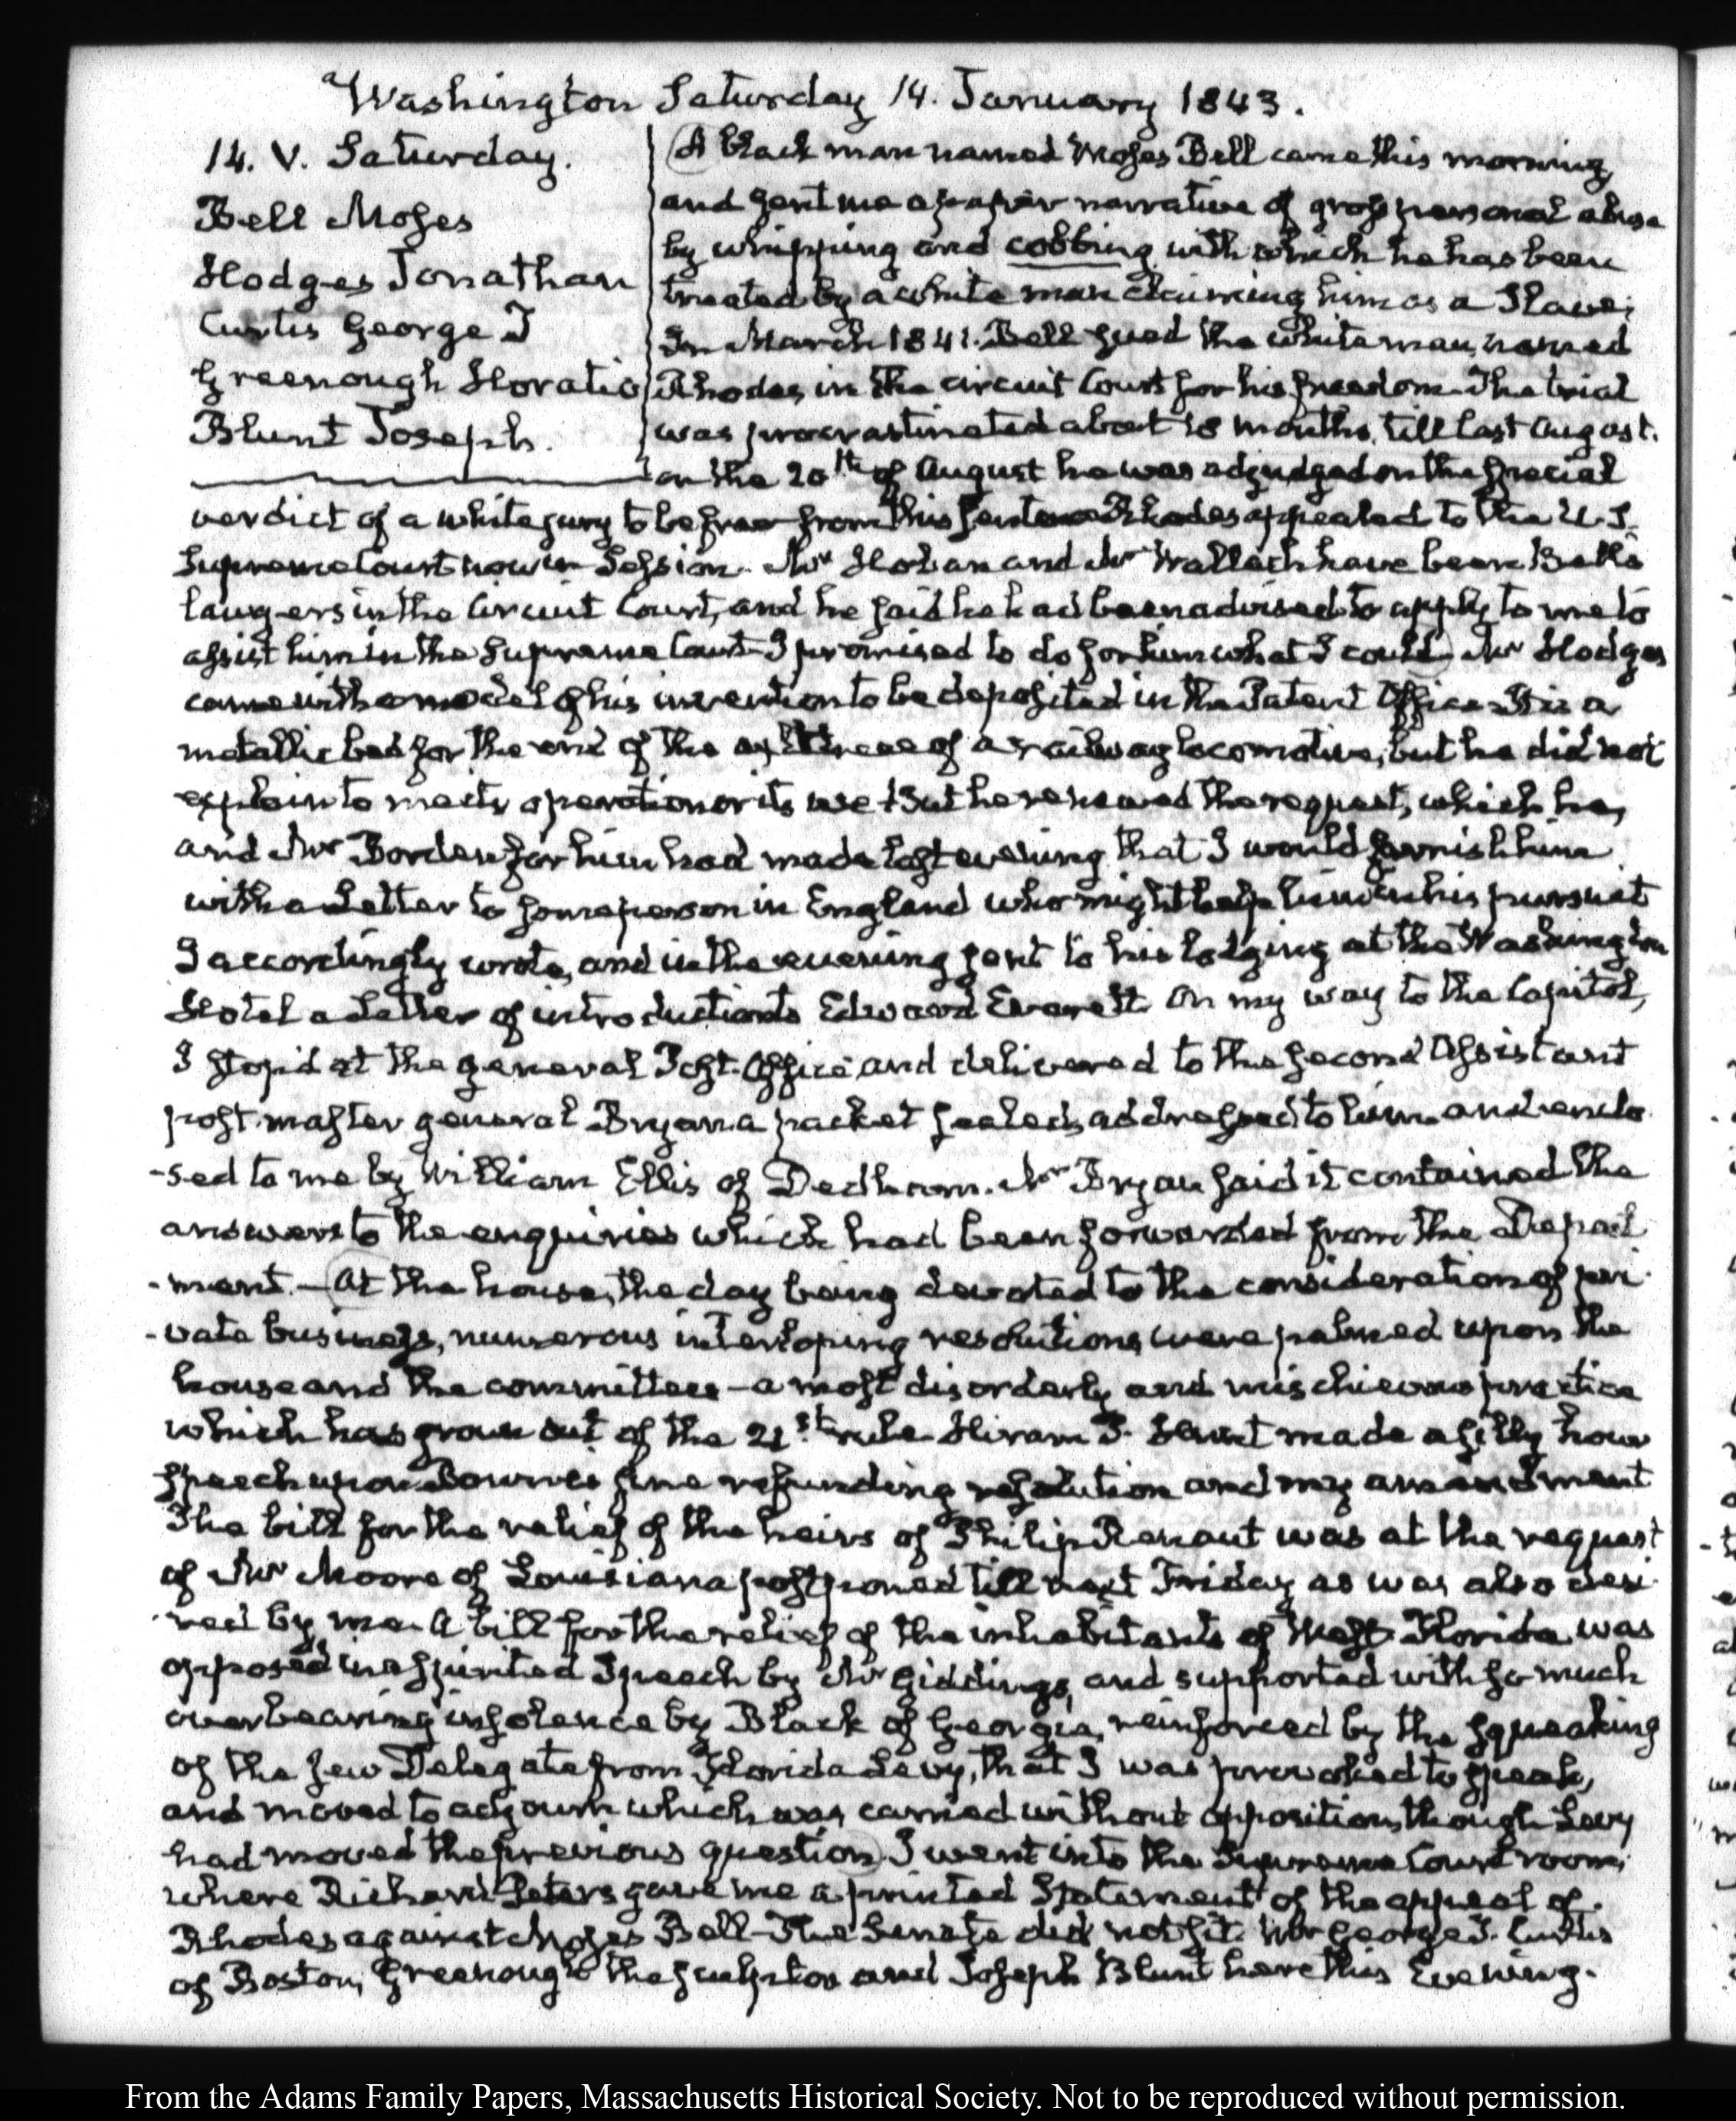 Washington Saturday 14. January 1843.
14. V. Saturday.
Bell Moses
Hodges Jonathan
Curtis George T
Greenough Horatio
Blunt Joseph.
A black man named Moses Bell came this morning,
and sent me a paper narrative of gross personal abuse
by whipping and cobbing with which he has been
treated by a white man claiming him as a Slave;
In March 1841. Bell sued the white man, named
Rhodes in the Circuit Court for his freedom. The trial
was procrastinated about 18 months, till last August.
on the 20th of August he was adjudged on the special
verdict of a white jury to be free from this sentence Rhodes appealed to the U.S.
Supreme Court now in Session. Mr Hoban and Mr Wallach have been Bell's
lawyers in the Circuit Court, and he said he had been advised to apply to me to
assist him in the Supreme Court—I promised to do for him what I could. Mr Hodges
came with a model of his invention to be deposited in the Patent Office. It is a
metallic bed for the end of the axletree of a railway locomotive, but he did not
explain to me its operation or its use. But he renewed the request, which he,
and Mr Borden for him had made last evening that I would furnish him
with a Letter to some person in England who might help him in his pursuit
I accordingly wrote, and in the evening sent to his lodging at the Washington
Hotel a Letter of introduction to Edward Everett. On my way to the Capitol,
I stop'd at the general Post-Office and delivered to the second Assistant
post-master general Bryan a packet sealed, addressed to him and enclo
-sed to me by William Ellis of Dedham. Mr Bryan said it contained the
answers to the enquiries which had been forwarded from the Depart
-ment.—At the house, the day being devoted to the consideration of pri
-vate business, numerous interloping resolutions were palmed upon the
house and the committees—a most disorderly and mischievous practice
which has grown out of the 21st rule. Hiram P. Hunt made a silly hour
speech upon Downes fine refunding resolution and my amendment
The bill for the relief of the heirs of Philip Renaut was at the request
of Mr Moore of Louisiana postponed till next Friday as was also desi
-red by me. A bill for the relief of the inhabitants of West-Florida was
opposed in a spirited Speech by Mr Giddings, and supported with so much
overbearing insolence by Black of Georgia, reinforced by the squeaking
of the Jew Delegate from Florida Levy, that I was provoked to speak,
and moved to adjourn which was carried without opposition, though Levy
had moved the previous question. I went into the Supreme Court room,
where Richard Peters gave me a printed Statement of the appeal of
Rhodes against Moses Bell—The Senate did not sit. Mr George T. Curtis
of Boston, Greenough the sculptor and Joseph Blunt here this Evening.
From the Adams Family Papers, Massachusetts Historical Society. Not to be reproduced without permission.